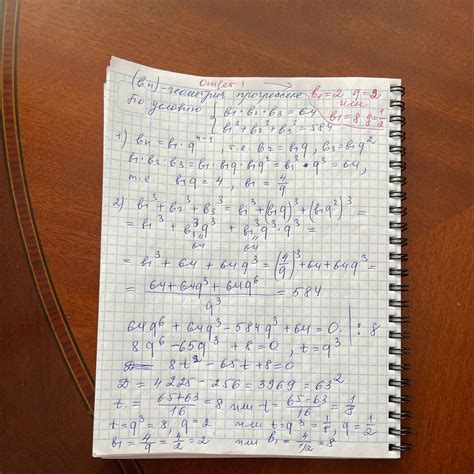 Ответ:
(bn) - геометрич. прогрессия b₁=2, q=2,
По условию { b₁·b₂·b₃=64 или
b₁³+b₂³+b₃³=584 b₁=8 q=1/2
1) bn=b₁·qⁿ⁻¹, т.е. b₂=b₁q, b₃=b₁q²
b₁·b₂·b₃=b₁·b₁q·b₁q²=b₁³·q³=64,
т.е. b₁q=4, b₁=4/q
2) b₁³+b₂³+b₃³=b₁³+(b₁q)³+(b₁q²)³=
=b₁³+b₁³q³+b₁³q³·q³=
64 64
=b₁³+64+64q³=(4/q)³+64+64q³=
=(64+64q³+64q⁶)/q³=584
64q⁶+64q³-584q³+64=0. |:8
8q⁶-65q³+8=0, t=q³
8t²-65t+8=0
D=4225-256=3969=63²
t=(65+63)/16=8 или t=(65-63)/16=1/8
t=q³=8, q=2 или t=q³=1/8, q=1/2
b₁=4/q=4/2=2 или b₁=4/1/2=8